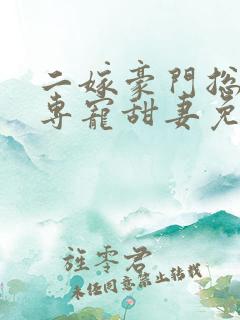 二嫁豪門總
專寵甜妻免
旌零君
未任同意禁止转载